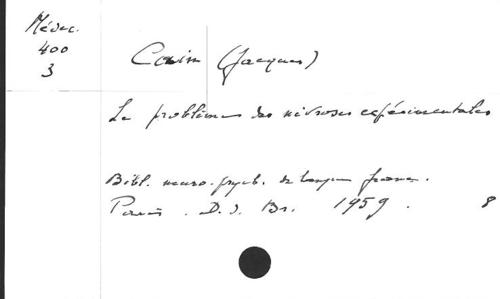 Médec.
400
3
Cain (Jacques)
Le problème des névroses expérimentales
Bibl. neuro-psych. de langue franç.
Paris. D. d. Br. 1959. 8